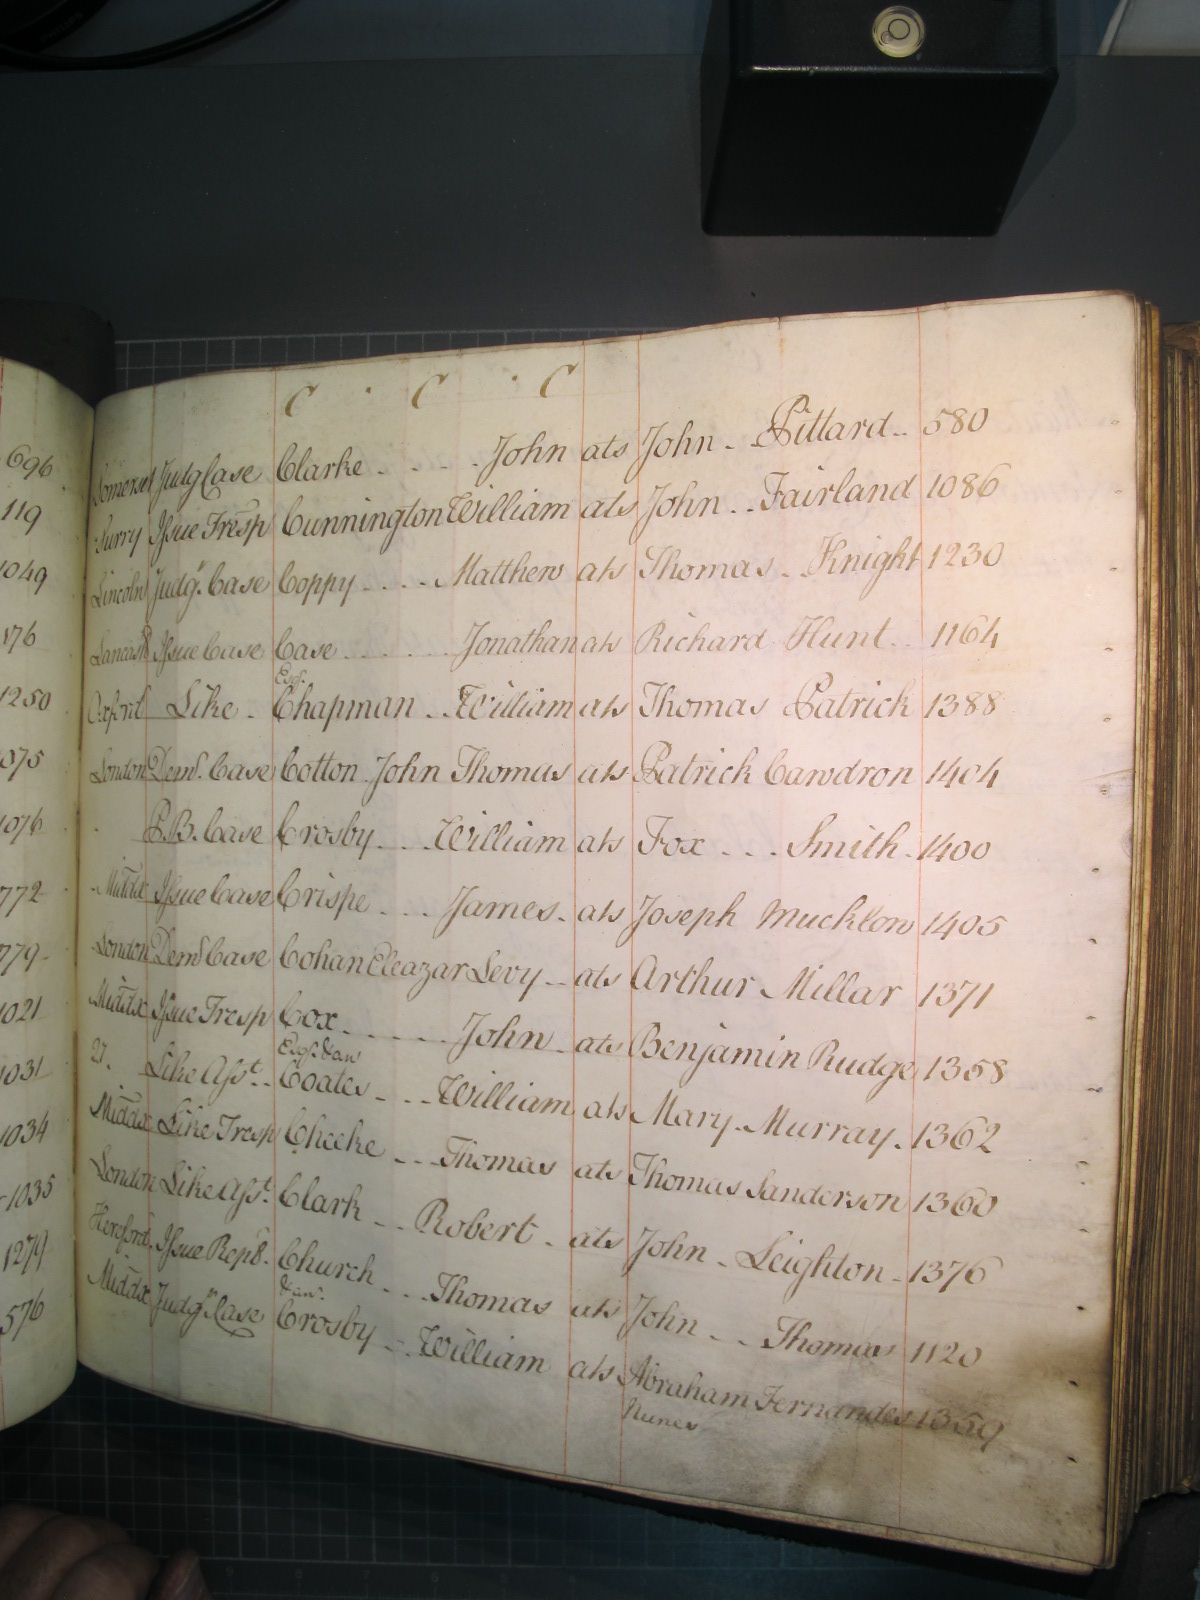 C . C . C
696
119
1049
176
1250
075
1076
772
779
1021
1031
1034
1035
1279
576
Somerset Judg Case Clarke John ats John Pittard 580
Surry Issue Tresp Cunnington William ats John Fairland 1086
Lincoln Judgt. Case Coppy Matthew ats Thomas Knight 1230
Lancash Issue Case Case Jonathan ats Richard Hunt 1164
Esqr.
Oxford Like Chapman William ats Thomas Patrick 1388
London Demr. Case Cotton John Thomas ats Patrick Cawdron 1404
P.B. Case Crosby William ats Fox Smith 1400
Middx Issue Case Crispe James ats Joseph Mucklow 1405
London Demr Case Cohan Eleazar Levy ats Arthur Millar 1371
Middx Issue Tresp Cox John ats Benjamin Rudge 1358
Esqr. & an
Like Asst. Coates William ats Mary Murray 1362
Middx Like Tresp Cheeke Thomas ats Thomas Sanderson 1360
London Like Asst. Clark Robert ats John Leighton 1376
Hereford. Issue Repl. Church Thomas ats John Thomas 1120
& an.
Middx Judgt Case Crosby William ats Abraham Fernandes 1359
Nunes